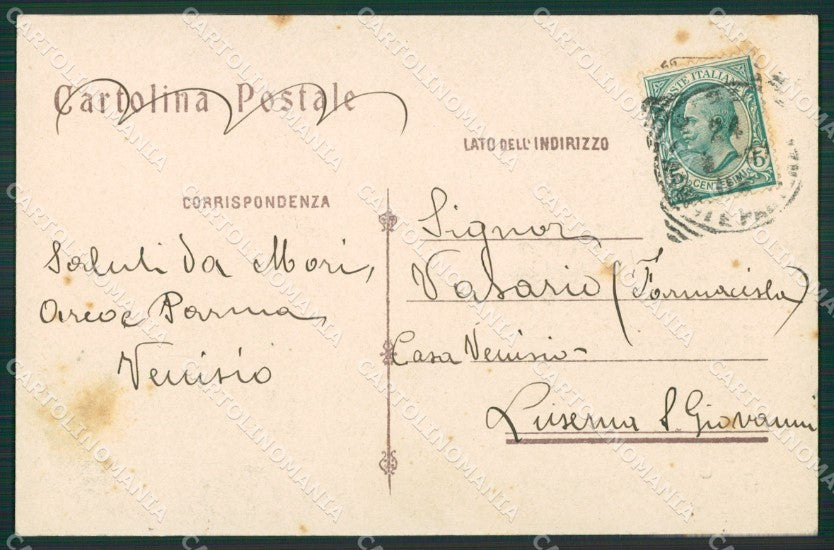 Cartolina Postale
LATO DELL'INDIRIZZO
CORRISPONDENZA
POSTE ITALIANE
CENT
Saluti da Mori,
Parma
Venisio
Signor
Vasario (Farmacista)
Casa Venisio
Luserna S. Giovanni
CARTOLINOMANIA